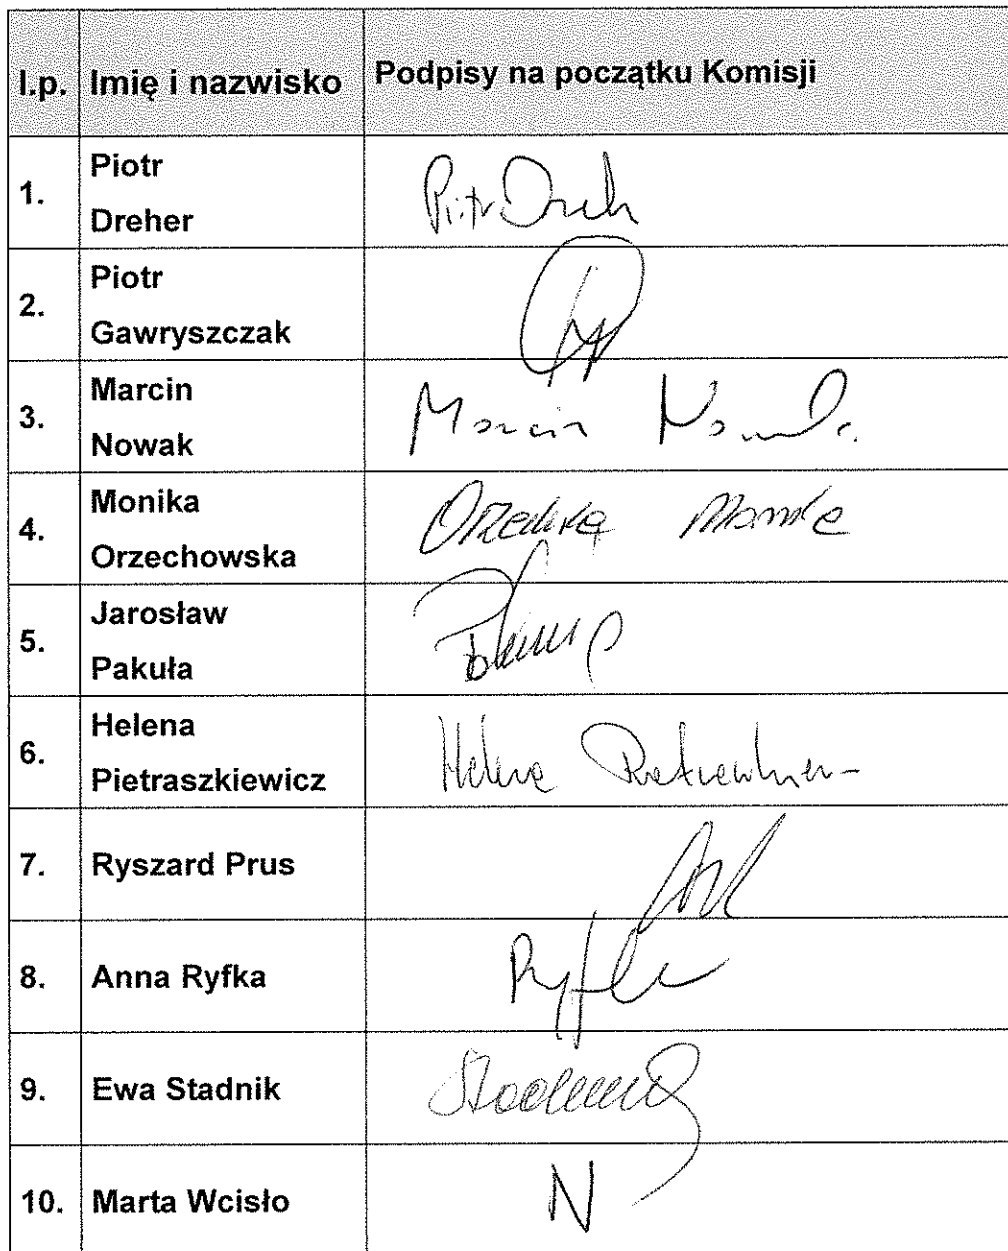 l.p. Imię i nazwisko Podpisy na początku Komisji
1. Piotr
Dreher
Piotr Dreh
2. Piotr
Gawryszczak
3. Marcin
Nowak
Marcin Nowak
4. Monika
Orzechowska
5. Jarosław
Pakuła
6. Helena
Pietraszkiewicz
Helena
7. Ryszard Prus
8. Anna Ryfka
Ryfka
9. Ewa Stadnik
Stadnik
10. Marta Wcisło N